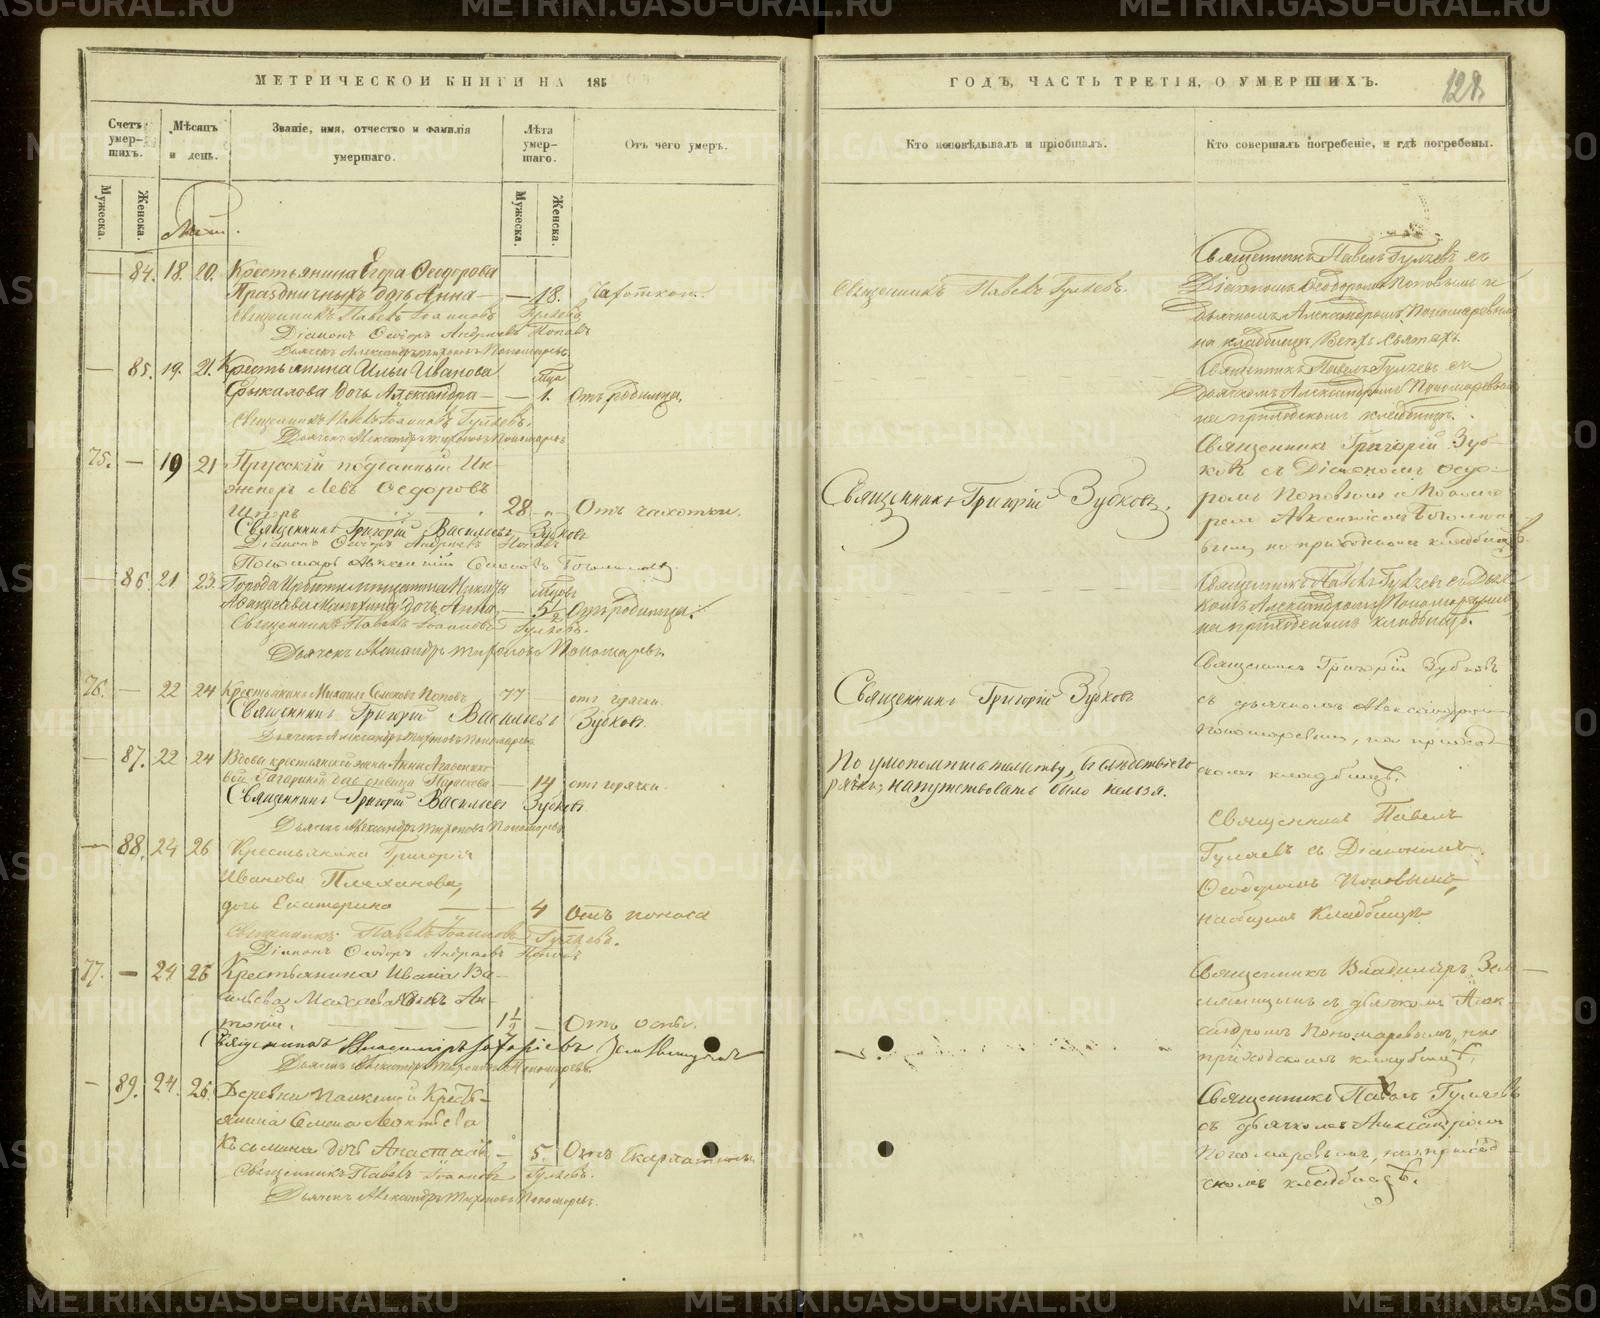 МЕТРИЧЕСКОЙ КНИГИ НА 185
ГОДЪ, ЧАСТЬ ТРЕТІЯ, О УМЕРШИХЪ.
128.
Счетъ умер-шихъ.
Мѣсяцъ и день.
Званіе, имя, отчество и фамилія умершаго.
Лѣта умер-шаго.
Отъ чего умеръ.
Кто исповѣдывалъ и пріобщалъ.
Кто совершалъ погребеніе, и гдѣ погребены.
Мужеска.
Женска.
Мужеска.
Женска.
Май.
— 84. 18. 20. Крестьянина Егора Ѳеодорова
Праздничныхъ дочь Анна — — 18. Чахоткою.
Священникъ Павелъ Іоанновъ Гуляевъ
Діаконъ Ѳеодоръ Андреевъ Поповъ
Дьячекъ Александръ Тихоновъ Пономаревъ
Священникъ Павелъ Гуляевъ.
Священникъ Павелъ Гуляевъ съ
Діакономъ Ѳеодоромъ Поповымъ и
Дьячкомъ Александромъ Пономаревымъ
на кладбищѣ Всѣхъ Святыхъ.
— 85. 19. 21. Крестьянина Ильи Иванова
дочь Александра — — 1. Отъ родимца.
Священникъ Павелъ Іоанновъ Гуляевъ.
Дьячекъ Александръ Тихоновъ Пономаревъ
Священникъ Павелъ Гуляевъ съ
Дьячкомъ Александромъ Пономаревымъ
на приходскомъ кладбищѣ.
75. — 19 21 Прусскій подданный Ин-
женеръ Левъ Ѳедоровъ
28 „ Отъ чахотки.
Священникъ Григорій Васильевъ Зубковъ
Діаконъ Ѳеодоръ Андреевъ Поповъ
Пономарь
Священникъ Григорій Зубковъ.
Священникъ Григорій Зуб-
ковъ съ Діакономъ Ѳедо-
ромъ Поповымъ и Понома-
ремъ
на приходскомъ кладбищѣ.
— 86. 21 23. Города
дочь Анна — 5 1/2 Отъ родимца.
Священникъ Павелъ Іоанновъ Гуляевъ.
Дьячекъ Александръ Тихоновъ Пономаревъ.
Священникъ Павелъ Гуляевъ съ Дьяч-
комъ Александромъ Пономаревымъ
на приходскомъ кладбищѣ.
76. — 22 24 Крестьянинъ Михаилъ Поповъ 77 — отъ горячки.
Священникъ Григорій Васильевъ Зубковъ.
Дьячекъ Александръ Тихоновъ Пономаревъ
Священникъ Григорій Зубковъ
Священникъ Григорій Зубковъ
съ дьячкомъ Александромъ
Пономаревымъ, на приход-
скомъ кладбищѣ.
— 87. 22 24 Вдовы крестьянской жены Анны
дочь девица — 14 отъ горячки.
Священникъ Григорій Васильевъ Зубковъ
Дьячекъ Александръ Тихоновъ Пономаревъ
По умопомѣшательству, въ слѣдствіе го-
рячки, напутствовать было нельзя.
— 88. 24 26 Крестьянина Григорія
Иванова Плеханова,
дочь Екатерина — — 4 Отъ поноса
Священникъ Павелъ Іоанновъ Гуляевъ.
Діаконъ Ѳеодоръ Андреевъ Поповъ
Священникъ Павелъ
Гуляевъ съ Діакономъ
Ѳеодоромъ Поповымъ,
на общемъ кладбищѣ
77. — 24 26 Крестьянина Ивана Ва-
сильева сынъ Ан-
тоній. — 1 1/2 — Отъ оспы.
Священникъ Владиміръ
Дьячекъ Александръ Тихоновъ Пономаревъ.
Священникъ Владиміръ Зем-
съ дьячкомъ Алек-
сандромъ Пономаревымъ, на
приходскомъ кладбищѣ.
— 89. 24. 26. Деревни Кресть-
янина Семена Леонтьева
Кузьмина дочь Анастасія — 5. Отъ скарлатины.
Священникъ Павелъ Іоанновъ Гуляевъ.
Дьячекъ Александръ Тихоновъ Пономаревъ.
Священникъ Павелъ Гуляевъ
съ дьячкомъ Александромъ
Пономаревымъ, на приход-
скомъ кладбищѣ.
METRIKI.GASO-URAL.RU